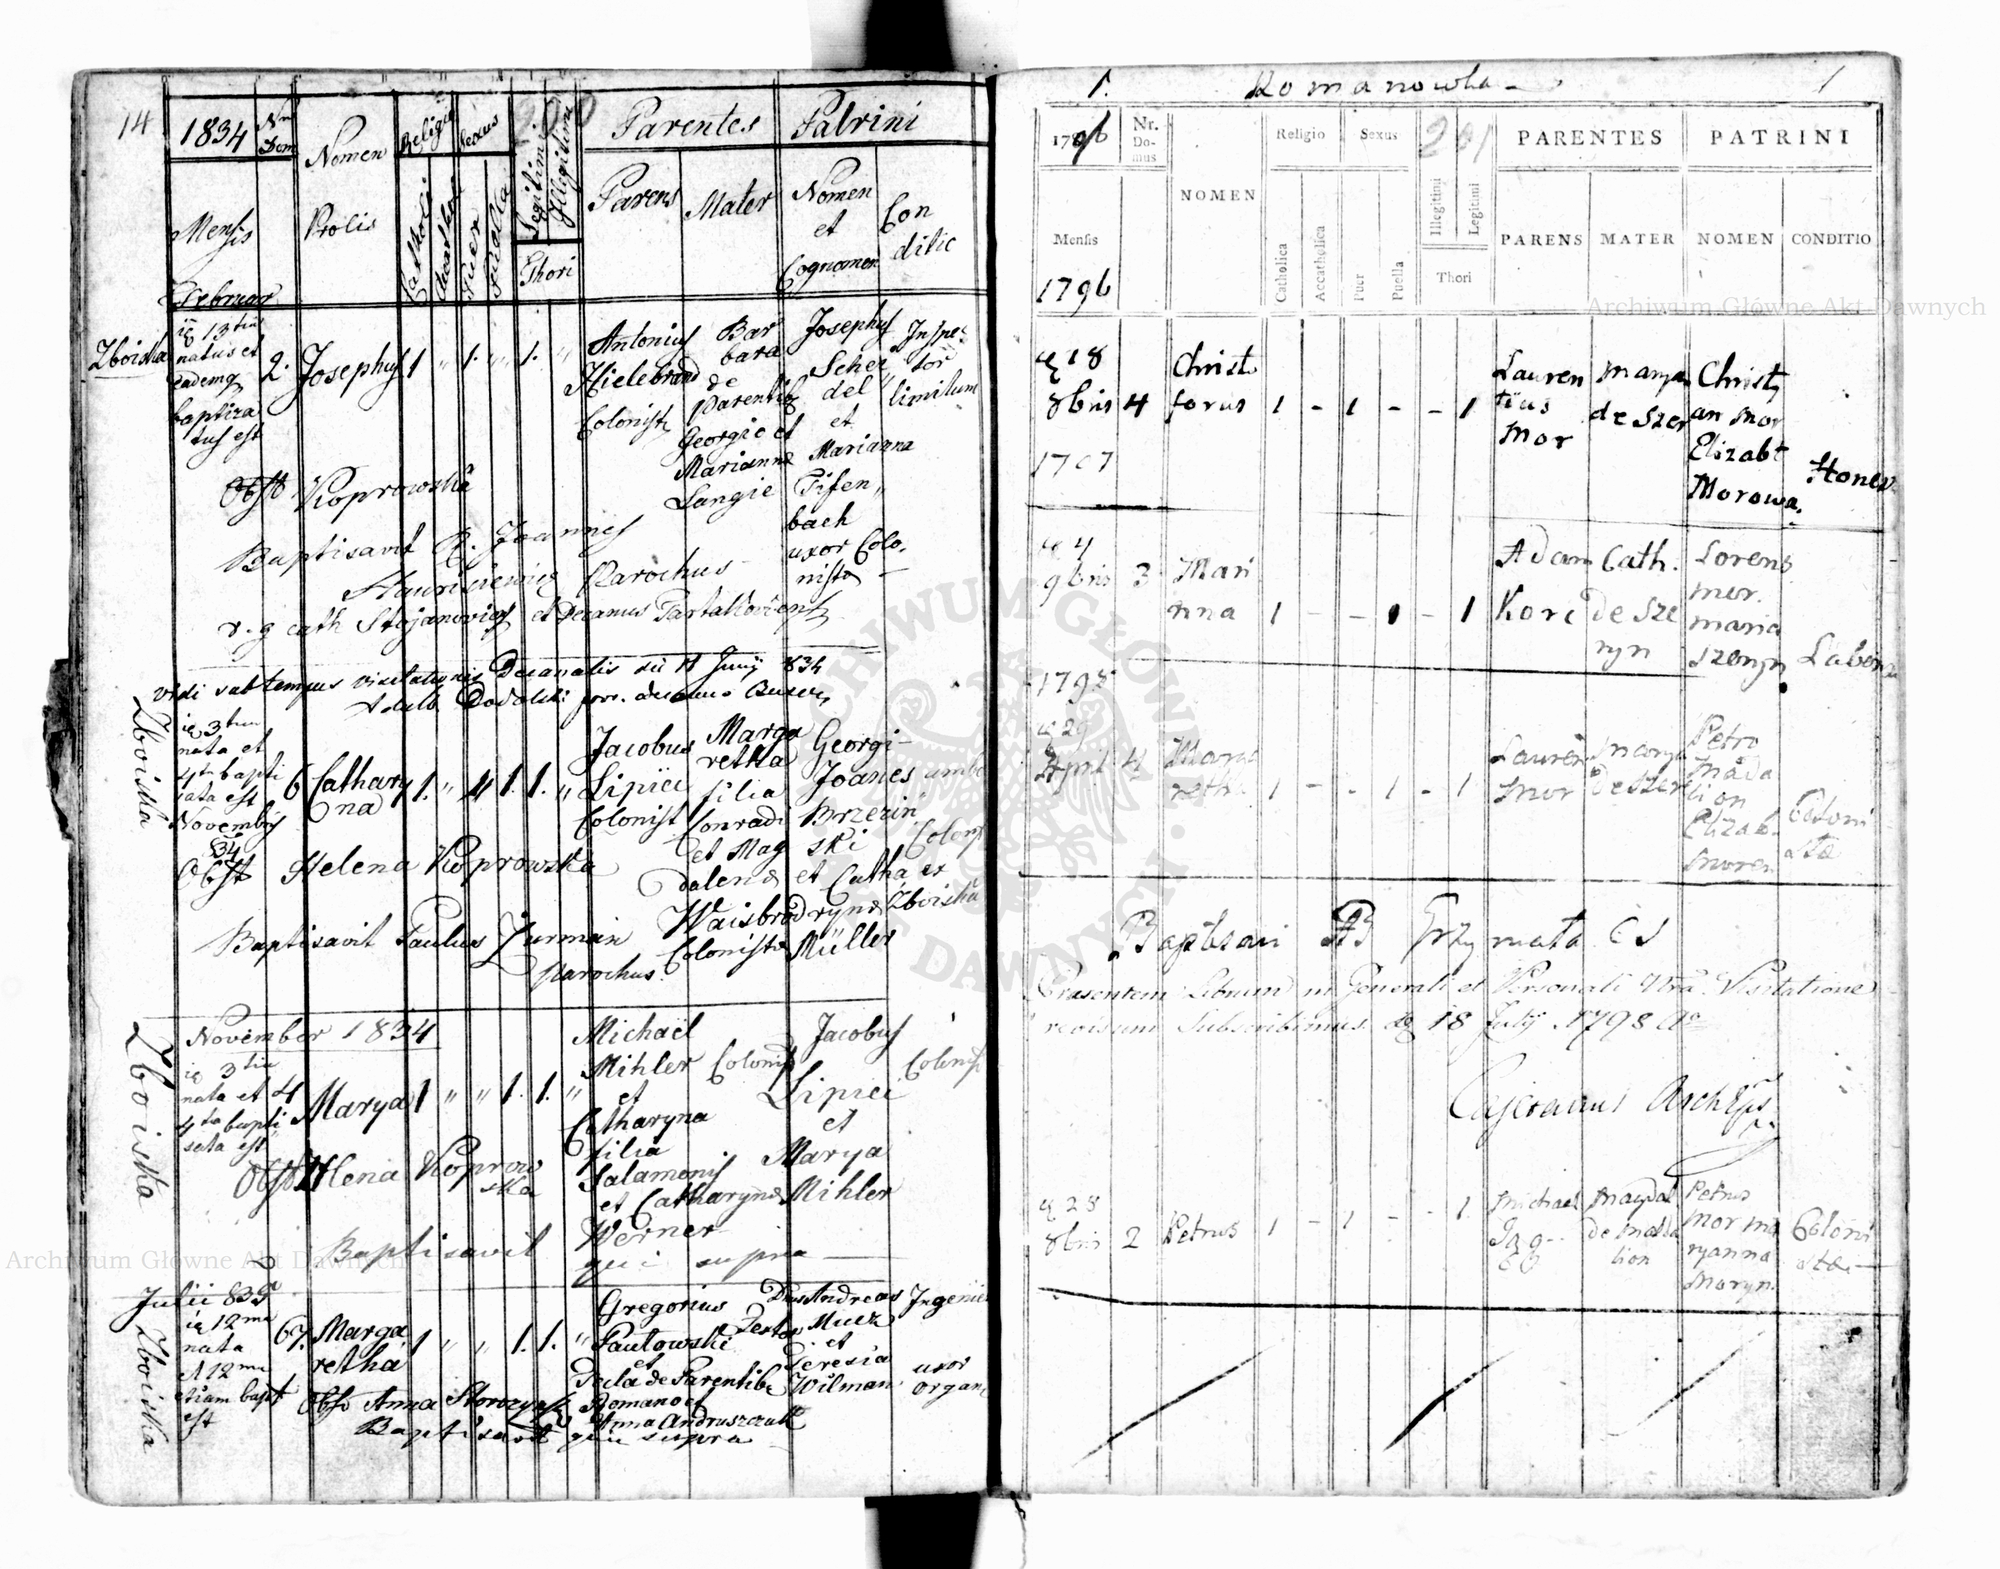 14
1834
Nr Dom
Nomen
Prolis
Religio
Sexus
200
Parentes
Patrini
Mensis
Catholici
Puer
Puella
Legitimi
Illegitimi
Thori
Parens
Mater
Nomen
et
Cognomen
Con
ditio
Februar
Zboiska
13tia
natus et
eademq
baptiza
tus est
2.
Josephus
1 " 1. " 1. "
Antonius
Hielebrand
Colonist
Bar
bara
de
Parentib
Georgio et
Marianna
Langie
Josephus
Scher
del
et
Marianna
Tifen
bach
uxor Colo
nista
Inspe
tor
limitum
Obst Koprowska
Baptisavit R. Joannes
Parochus
r. g cath Stojanovies et Decanus Tartakovens
Vidi sub tempus visitationis Decanalis die 11 Junij 834
Zboiska
3tia
nata et
4ta bapti
sata est
Novembris
834
6
Cathary
na
1. " " 1. 1. "
Jacobus
Lipiei
Colonist
Marga
retha
filia
Conradi
et Mag
dalena
Waisbrod
Colonista
Georgi
Joanes
Brzezin
ski
et Catha
ryna
Müller
ambo
Colonis
ex
Zboiska
Obst Helena Koprowska
Baptisavit Paulus Zurman
Parochus.
Zboiska
November 1834
3tia
nata et
4ta bapti
sata est
4
Marya
1 " " 1. 1. "
Michaël
Mihler Colonist
et
Catharyna
filia
Salamonis
et Catharyna
Werner
Jacobus
Lipiei
et
Marya
Mihler
Colonist
Obst Hlena Koprow
ska
Baptisavit qui supra
Zboiska
Julii 835
12ma
nata
12ma
etiam bapt
est
67.
Marga
retha
1 " " 1. 1. "
Gregorius
Pautowski
et
Tecla de Parentibs
Romano et
Anna Andruszczak
Dnus Andreas
Mucz
et
Teresia
Wilman
Ingenie
uxor
organi
Obst Anna
Baptisavit qui supra
1.
Romanowka
1
1796
Nr.
Do-
mus
NOMEN
Religio
Sexus
201
PARENTES
PATRINI
Mensis
1796
Catholica
Accatholica
Puer
Puella
Illegitimi
Legitimi
Thori
PARENS
MATER
NOMEN
CONDITIO
18
8bris
4
Christo
forus
1 - 1 - - 1
Lauren
tius
Mor
Marya
de Szer
Christ
an Mor
Elizabt
Morowa.
Hones
1797
4
9bris
3
Mari
nna
1 - - 1 - 1
Adam
Kori
Cath.
de Sze
ryn
Lorens
mor.
maria
Szenyn
1798
29
April
4
Marga
reth
1 - - 1 - 1
Lauren
Mor
Marya
de Szer
Petro
Mada
lion
Elizab.
Moren
Coloni
sta
Baptisavi Grzymata
Praesentem Librum in Generali et Personali Nra Visitatione
revisum Subscribimus 18 July 1798
Cajetanus Archieps
28
8bris
2
Petrus
1 - 1 - - 1.
Michael
Magdal
de Mada
lion
Petrus
Mor Ma
ryanna
Moryn.
Coloni
stae
Archiwum Główne Akt Dawnych
Archiwum Główne Akt Dawnych
ARCHIWUM GŁÓWNE AKT DAWNYCH